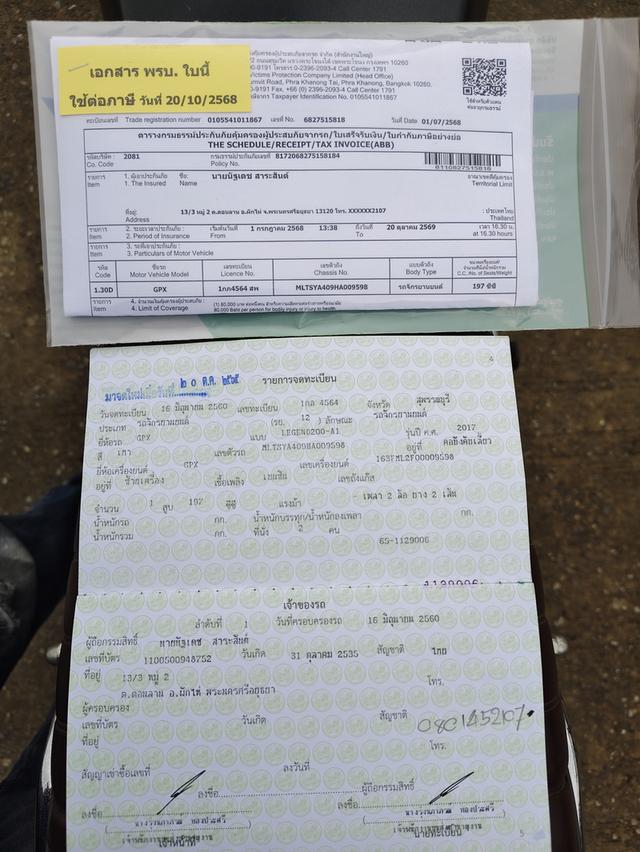 เอกสาร พรบ. ใบนี้
ใช้ต่อภาษี วันที่ 20/10/2568
Victims Protection Company Limited (Head Office)
ทะเบียนเลขที่ Trade registration number 0105541011867 เลขที่ No. 6827515818 วันที่ Date 01/07/2568
ตารางกรมธรรม์ประกันภัยคุ้มครองผู้ประสบภัยจากรถ/ใบเสร็จรับเงิน/ใบกำกับภาษีอย่างย่อ
THE SCHEDULE/RECEIPT/TAX INVOICE(ABB)
รหัสบริษัท : 2081 กรมธรรม์ประกันภัยเลขที่ 8172068275158184
Co. Code Policy No.
รายการ 1. ผู้เอาประกันภัย ชื่อ: นายนัฐเดช สาระสันต์ อาณาเขตที่คุ้มครอง
Item 1. The Insured Name Territorial Limit
ที่อยู่: 13/3 หมู่ 2 ต.ดอนลาน อ.ผักไห่ จ.พระนครศรีอยุธยา 13120 โทร. XXXXXX2107 : ประเทศไทย
Address Thailand
รายการ 2. ระยะเวลาประกันภัย : เริ่มต้นวันที่ 1 กรกฎาคม 2568 13:38 ถึงวันที่ 20 ตุลาคม 2569 เวลา 16.30 น.
Item 2. Period of Insurance From To at 16.30 hours
รายการ 3. รถที่เอาประกันภัย :
Item 3. Particulars of Motor Vehicle
รหัส ชื่อรถ เลขทะเบียน เลขตัวถัง แบบตัวถัง
Code Motor Vehicle Model Licence No. Chassis No. Body Type C.C./No. of Seats/Weight
1.30D GPX 1กก4564 สพ MLTSYA409HA009598 รถจักรยานยนต์ 197 ซีซี
รายการ 4. จำนวนเงินคุ้มครองผู้ประสบภัย :
Item 4. Limit of Coverage 80,000 Baht per person for bodily injury or injury to health
4
มาจดใหม่เมื่อวันที่ ๒๐ ต.ค. ๒๕๖๕ รายการจดทะเบียน
วันจดทะเบียน 16 มิถุนายน 2560 เลขทะเบียน 1กก 4564 จังหวัด สุพรรณบุรี
ประเภท รถจักรยานยนต์ (รย. 12 ) ลักษณะ รถจักรยานยนต์
ยี่ห้อรถ GPX แบบ LEGEND200-A1 รุ่นปี ค.ศ. 2017
สี เทา เลขตัวรถ MLTSYA409HA009598 อยู่ที่ คอข้างคันเลี้ยว
ยี่ห้อเครื่องยนต์ GPX เลขเครื่องยนต์ 163FML2F00009598
อยู่ที่ ซ้ายเครื่อง เชื้อเพลิง เบนซิน เลขถังแก๊ส
จำนวน 1 สูบ 197 ซีซี แรงม้า - เพลา 2 ล้อ ยาง 2 เส้น
น้ำหนักรถ กก. น้ำหนักบรรทุก/น้ำหนักลงเพลา กก.
น้ำหนักรวม กก. ที่นั่ง 2 คน
65-1129006
1129006
เจ้าของรถ
ลำดับที่ 1 วันที่ครอบครองรถ 16 มิถุนายน 2560
ผู้ถือกรรมสิทธิ์ นายนัฐเดช สาระสันต์
เลขที่บัตร 1100500948752 วันเกิด 31 ตุลาคม 2535 สัญชาติ ไทย
ที่อยู่ 13/3 หมู่ 2 โทร.
ต.ดอนลาน อ.ผักไห่ พระนครศรีอยุธยา
ผู้ครอบครอง
เลขที่บัตร วันเกิด สัญชาติ 0801452107
ที่อยู่ โทร.
สัญญาเช่าซื้อเลขที่ ลงวันที่
ลงชื่อ ผู้ถือกรรมสิทธิ์
ลงชื่อ ลงชื่อ
เจ้าหน้าที่ นายทะเบียน
5